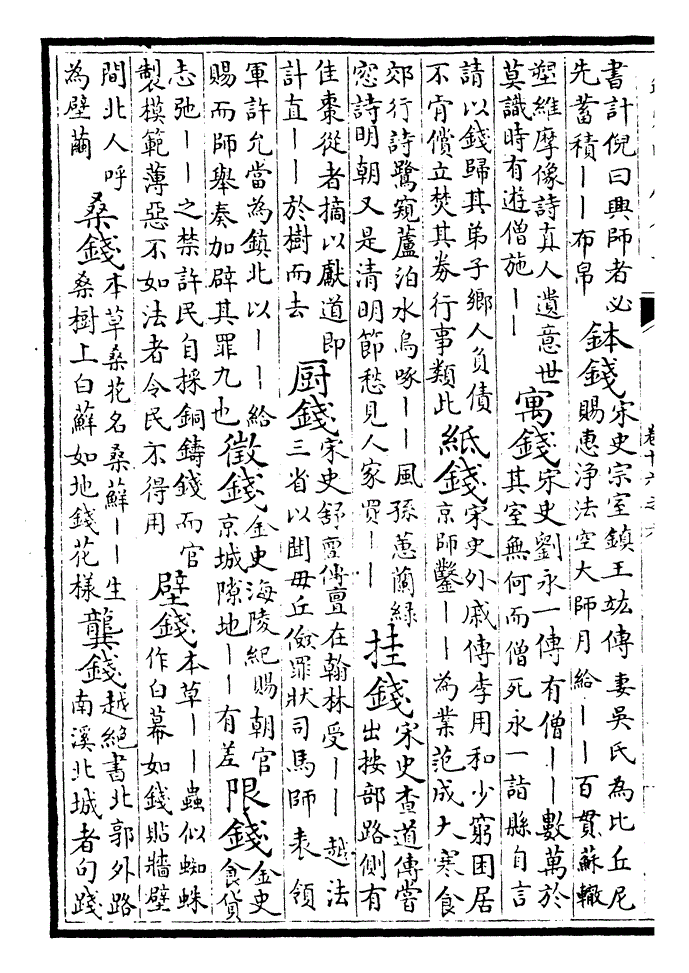 書計倪曰興師者必
先蓄積丨丨布帛
鉢錢
宋史宗室鎮王竑傳妻吳氏為比丘尼
賜惠淨法空大師月給丨丨百貫蘇轍
塑維摩像詩真人遺意世
莫識時有遊僧施丨丨
寓錢
宋史劉永一傳有僧丨丨數萬於
其室無何而僧死永一詣縣自言
請以錢歸其弟子鄉人負債
不肯償立焚其券行事類此
紙錢
宋史外戚傳李用和少窮困居
京師鑿丨丨為業范成大寒食
郊行詩鷺窺蘆泊水烏啄丨丨風孫蕙蘭綠
窓詩明朝又是清明節愁見人家買丨丨
挂錢
宋史查道傳嘗
出按部路側有
佳棗從者摘以獻道即
計直丨丨於樹而去
厨錢
宋史舒亶傳亶在翰林受丨丨越法
三省以聞毋丘儉罪狀司馬師表領
軍許允當為鎮北以丨丨給
賜而師舉奏加辟其罪九也
徵錢
金史海陵紀賜朝官
京城隙地丨丨有差
限錢
金史
食貨
志弛丨丨之禁許民自採銅鑄錢而官
製模範薄惡不如法者令民不得用
壁錢
本草丨丨蟲似蜘蛛
作白幕如錢貼牆壁
間北人呼
為壁繭
桑錢
本草桑花名桑蘚丨丨生
桑樹上白蘚如地錢花樣
龔錢
越絕書北郭外路
南溪北城者句踐